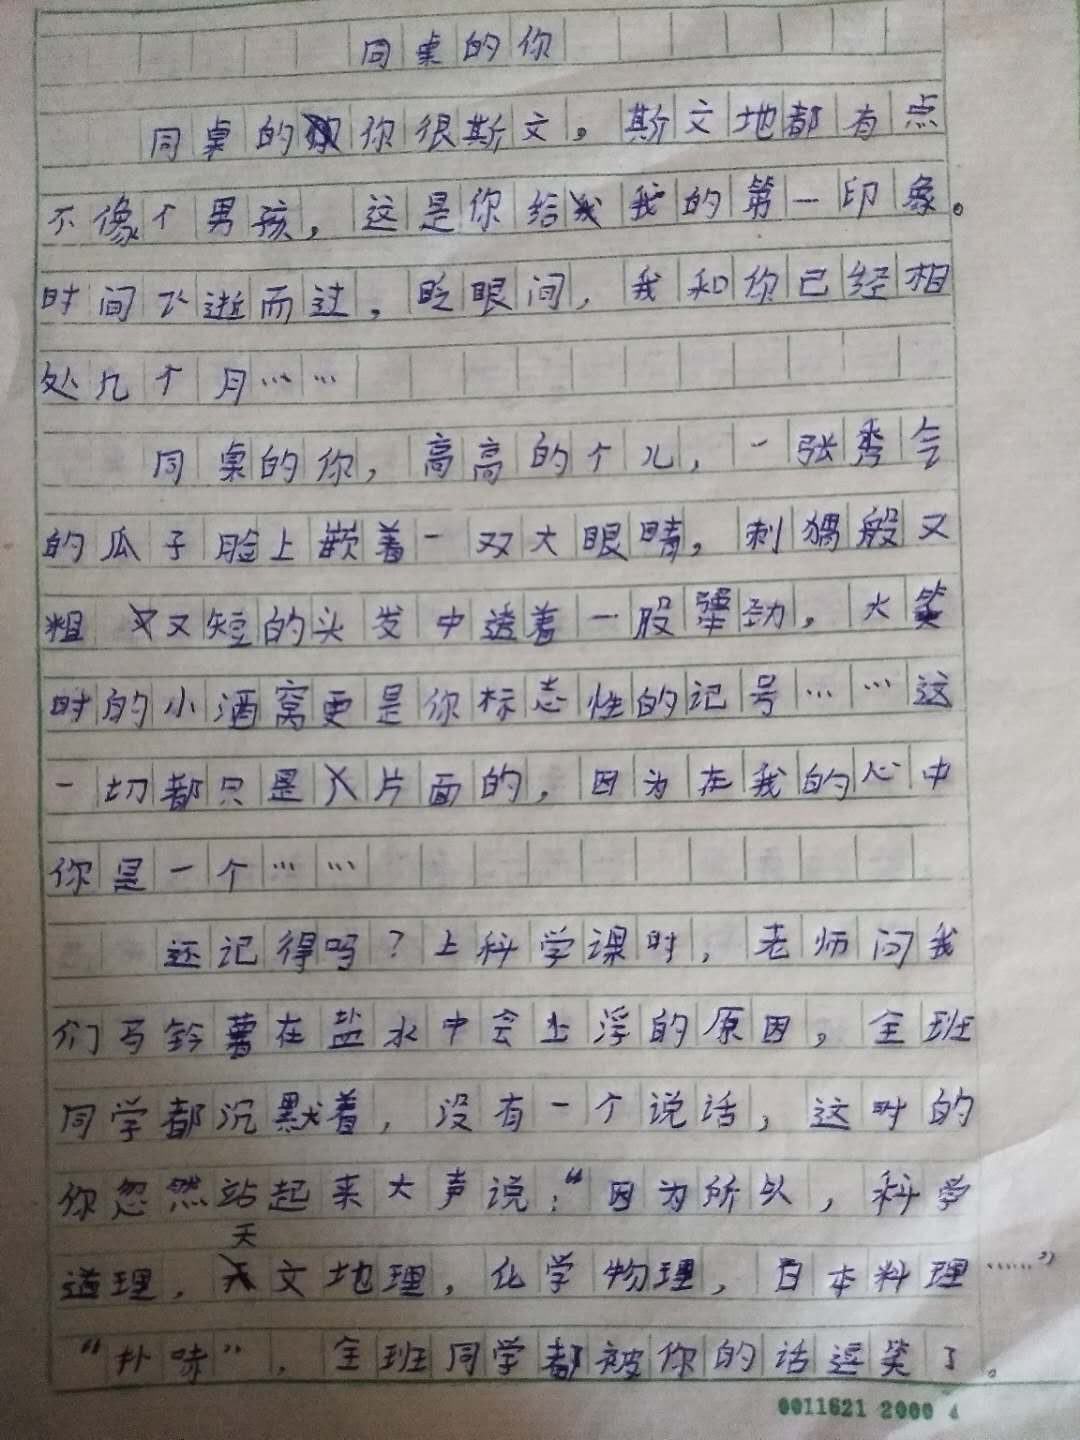 同桌的你
同桌的你很斯文。斯文地都有点
不像个男孩，这是你给我的第一印象。
时间飞逝而过，眨眼间，我和你已经相
处几个月……
同桌的你，高高的个儿，一张秀气
的瓜子脸上嵌着一双大眼睛，刺猬般又
粗又短的头发中透着一股犟劲，大笑
时的小酒窝更是你标志性的记号……这
一切都只是片面的，因为在我的心中
你是一个……
还记得吗？上科学课时，老师问我
们马铃薯在盐水中会上浮的原因，全班
同学都沉默着，没有一个说话，这时的
你忽然站起来大声说：“因为所以，科学
道理，天文地理，化学物理，日本料理……”
“扑哧”，全班同学都被你的话逗笑了。
0011621 2000 4